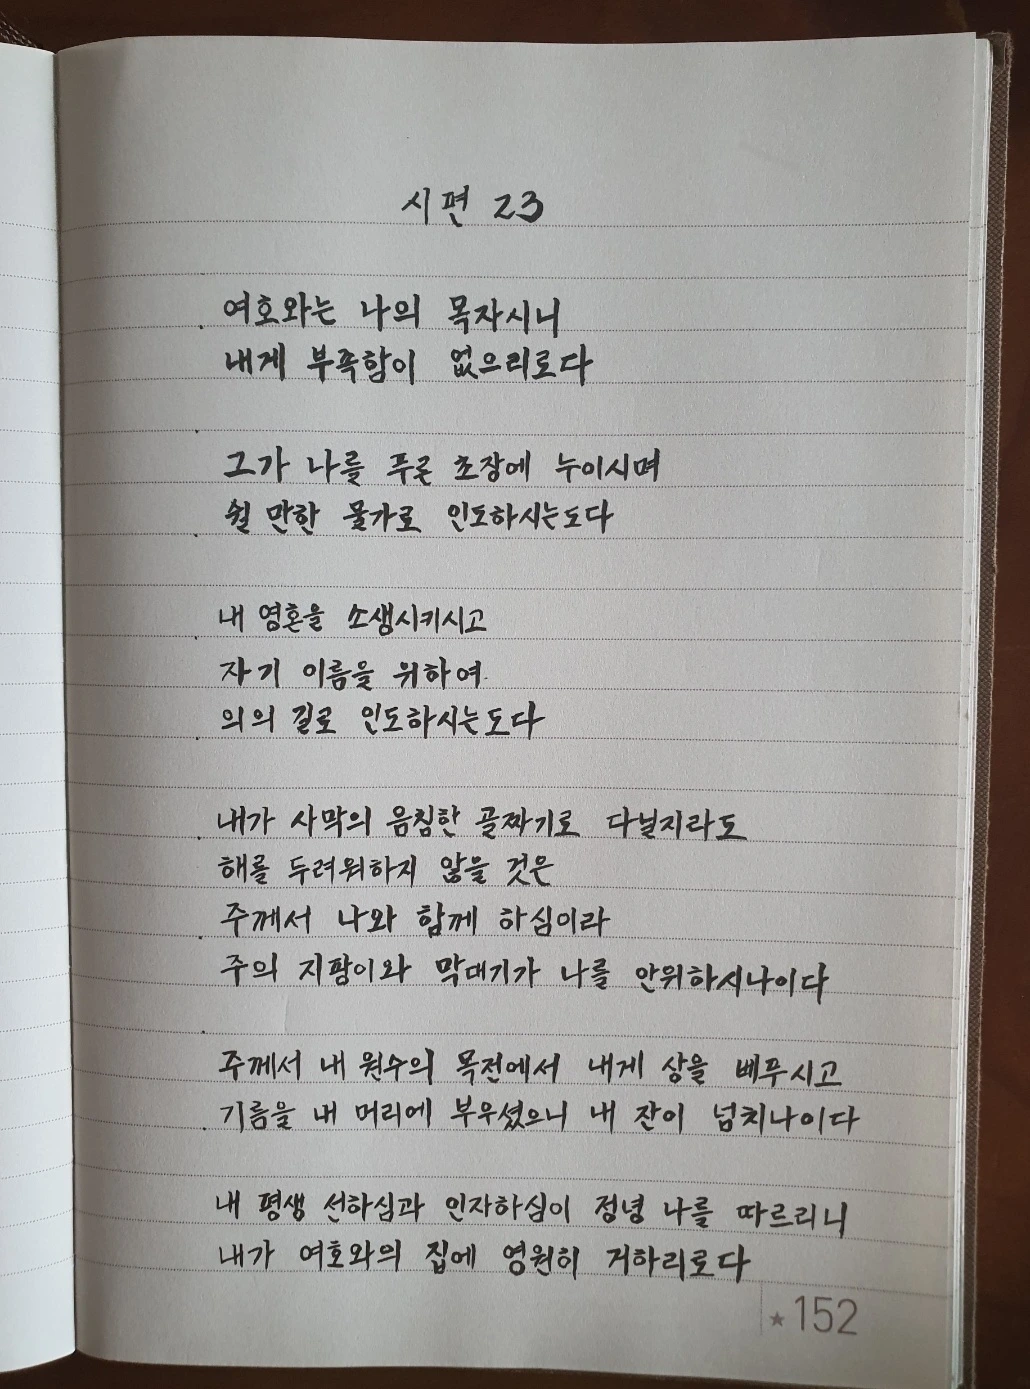 시편 23
여호와는 나의 목자시니
내게 부족함이 없으리로다
그가 나를 푸른 초장에 누이시며
쉴 만한 물가로 인도하시는도다
내 영혼을 소생시키시고
자기 이름을 위하여
의의 길로 인도하시는도다
내가 사막의 음침한 골짜기로 다닐지라도
해를 두려워하지 않을 것은
주께서 나와 함께 하심이라
주의 지팡이와 막대기가 나를 안위하시나이다
주께서 내 원수의 목전에서 내게 상을 베푸시고
기름을 내 머리에 부우셨으니 내 잔이 넘치나이다
내 평생 선하심과 인자하심이 정녕 나를 따르리니
내가 여호와의 집에 영원히 거하리로다
★152